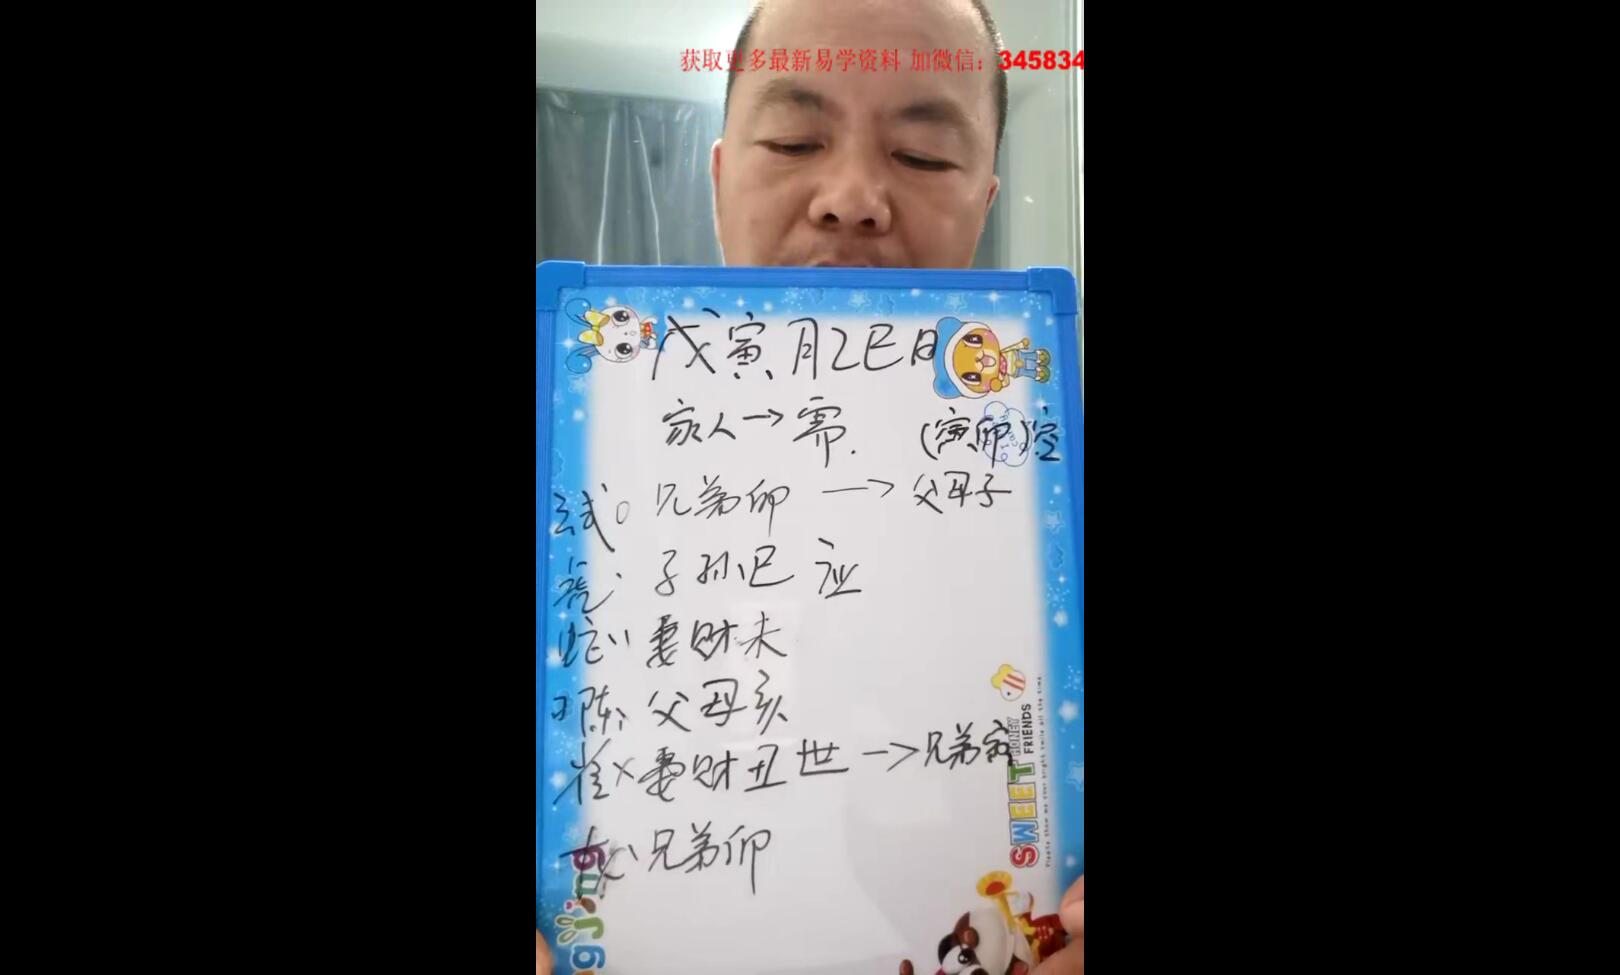 获取更多最新易学资料 加微信：345834
戊寅月乙巳日
家人→需.
(寅卯)空
玄武○ 兄弟卯 → 父母子
虎、 子孙巳 应
蛇〃 妻财未
陈、 父母亥
雀× 妻财丑世 → 兄弟寅
龙、 兄弟卯
SWEET
HONEY
FRIENDS